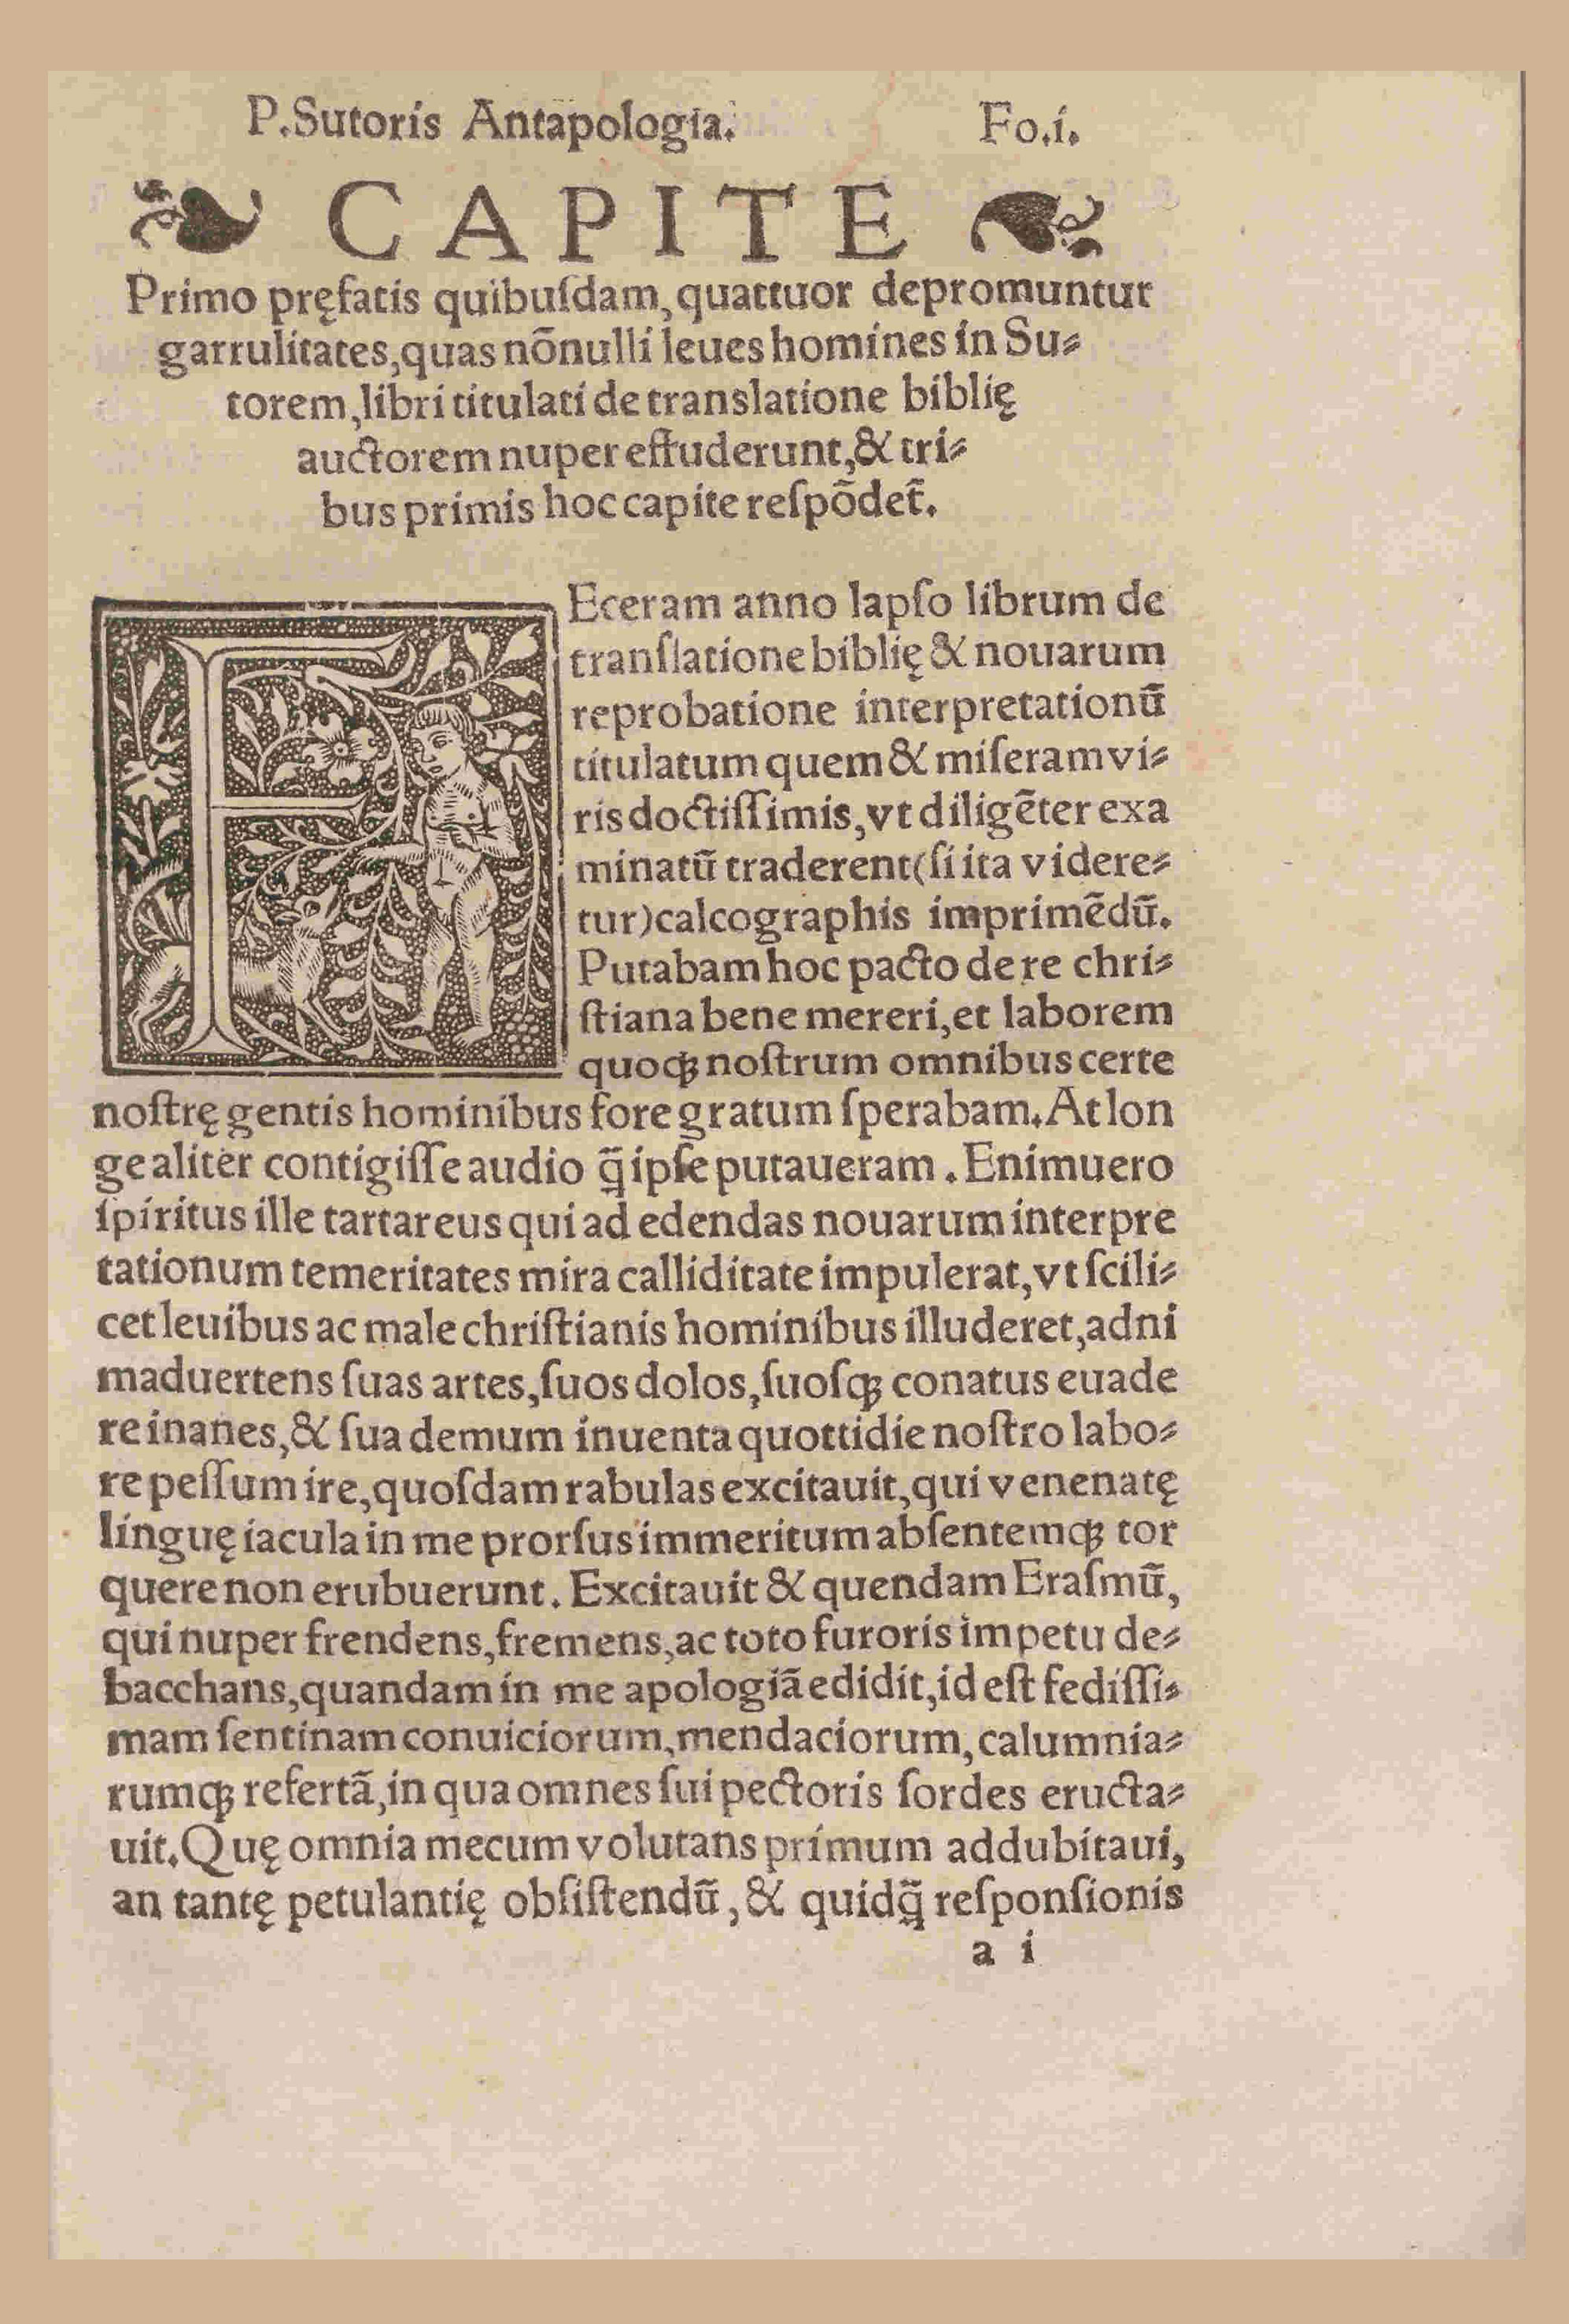 P.Sutoris Antapologia. Fo.i.
CAPITE
Primo pręfatis quibuſdam, quattuor depromuntur
garrulitates,quas nõnulli leues homines in Su⸗
torem,libri titulati de translatione biblię
auctorem nuper effuderunt,& tri⸗
bus primis hoc capite reſpõdet̃.
FEceram anno lapſo librum de
tranſlatione biblię & nouarum
reprobatione interpretationũ
titulatum quem & miſeram vi⸗
ris doctiſſimis,vt diligẽter exa
minatũ traderent(ſi ita videre⸗
tur)calcographis imprimẽdũ.
Putabam hoc pacto de re chri⸗
ſtiana bene mereri,et laborem
quoqꝫ noſtrum omnibus certe
noſtrę gentis hominibus fore gratum ſperabam.At lon
ge aliter contigiſſe audio q̃ ipſe putaueram .Enimuero
ſpiritus ille tartareus qui ad edendas nouarum interpre
tationum temeritates mira calliditate impulerat,vt ſcili⸗
cet leuibus ac male chriſtianis hominibus illuderet,adni
maduertens ſuas artes,ſuos dolos,ſuoſqꝫ conatus euade
re inanes,& ſua demum inuenta quottidie noſtro labo⸗
re peſſum ire,quoſdam rabulas excitauit,qui venenatę
linguę iacula in me prorſus immeritum abſentemqꝫ tor
quere non erubuerunt. Excitauit & quendam Eraſmũ,
qui nuper frendens,fremens,ac toto furoris impetu de⸗
bacchans,quandam in me apologiã edidit,id eſt fediſſi⸗
mam ſentinam conuiciorum,mendaciorum,calumnia⸗
rumqꝫ refertã,in qua omnes ſui pectoris ſordes eructa⸗
uit.Quę omnia mecum volutans primum addubitaui,
an tantę petulantię obſiſtendũ,& quidq̃ reſponſionis
a i